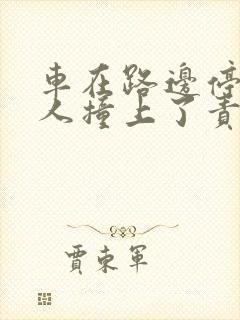 車在路邊停
人撞上了責
賈東軍